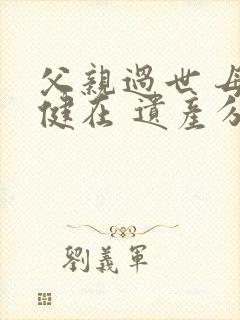 父親過世 母
健在 遺產分
劉義軍